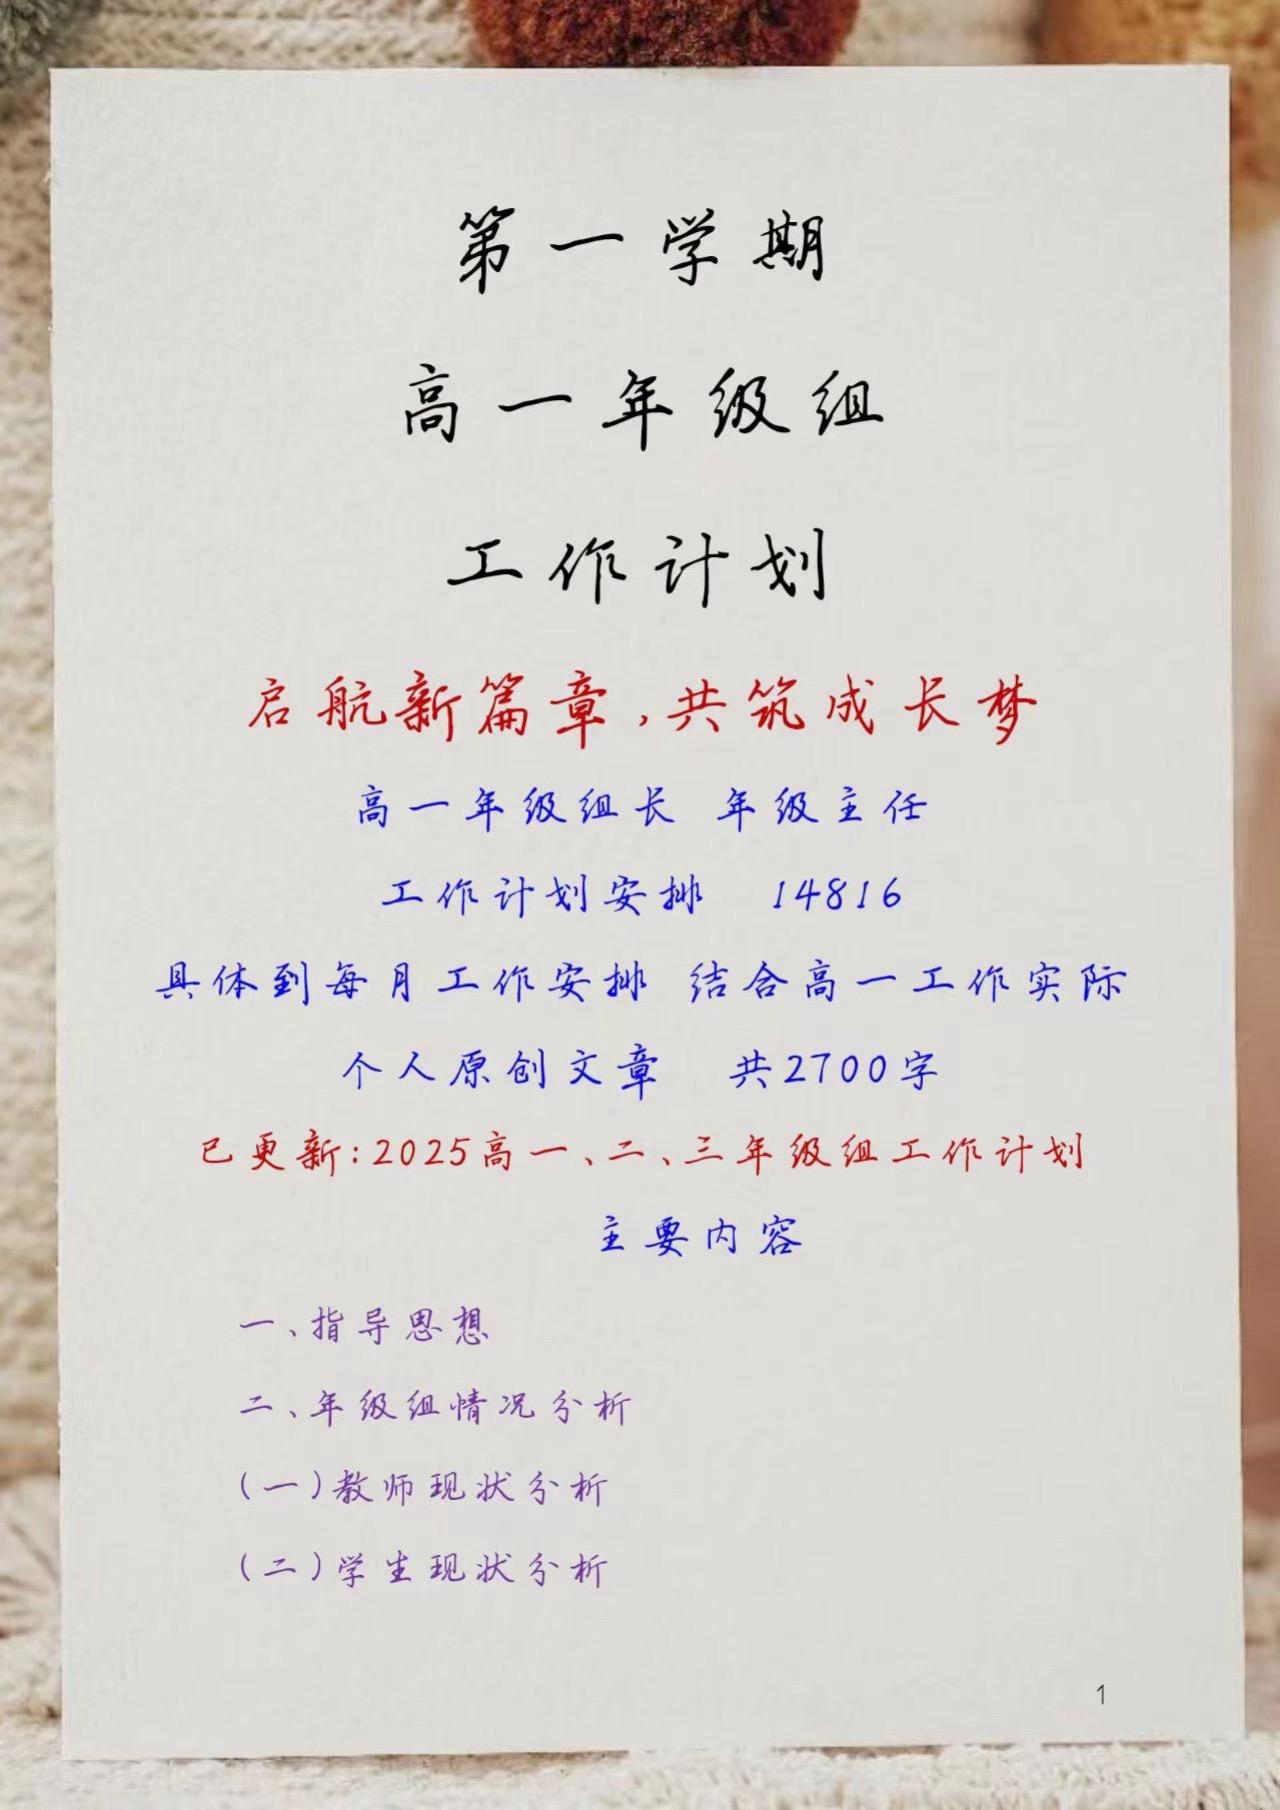 第一学期
高一年级组
工作计划
启航新篇章,共筑成长梦
高一年级组长 年级主任
工作计划安排 14816
具体到每月工作安排 结合高一工作实际
个人原创文章 共2700字
已更新:2025高一、二、三年级组工作计划
主要内容
一、指导思想
二、年级组情况分析
(一)教师现状分析
(二)学生现状分析
1